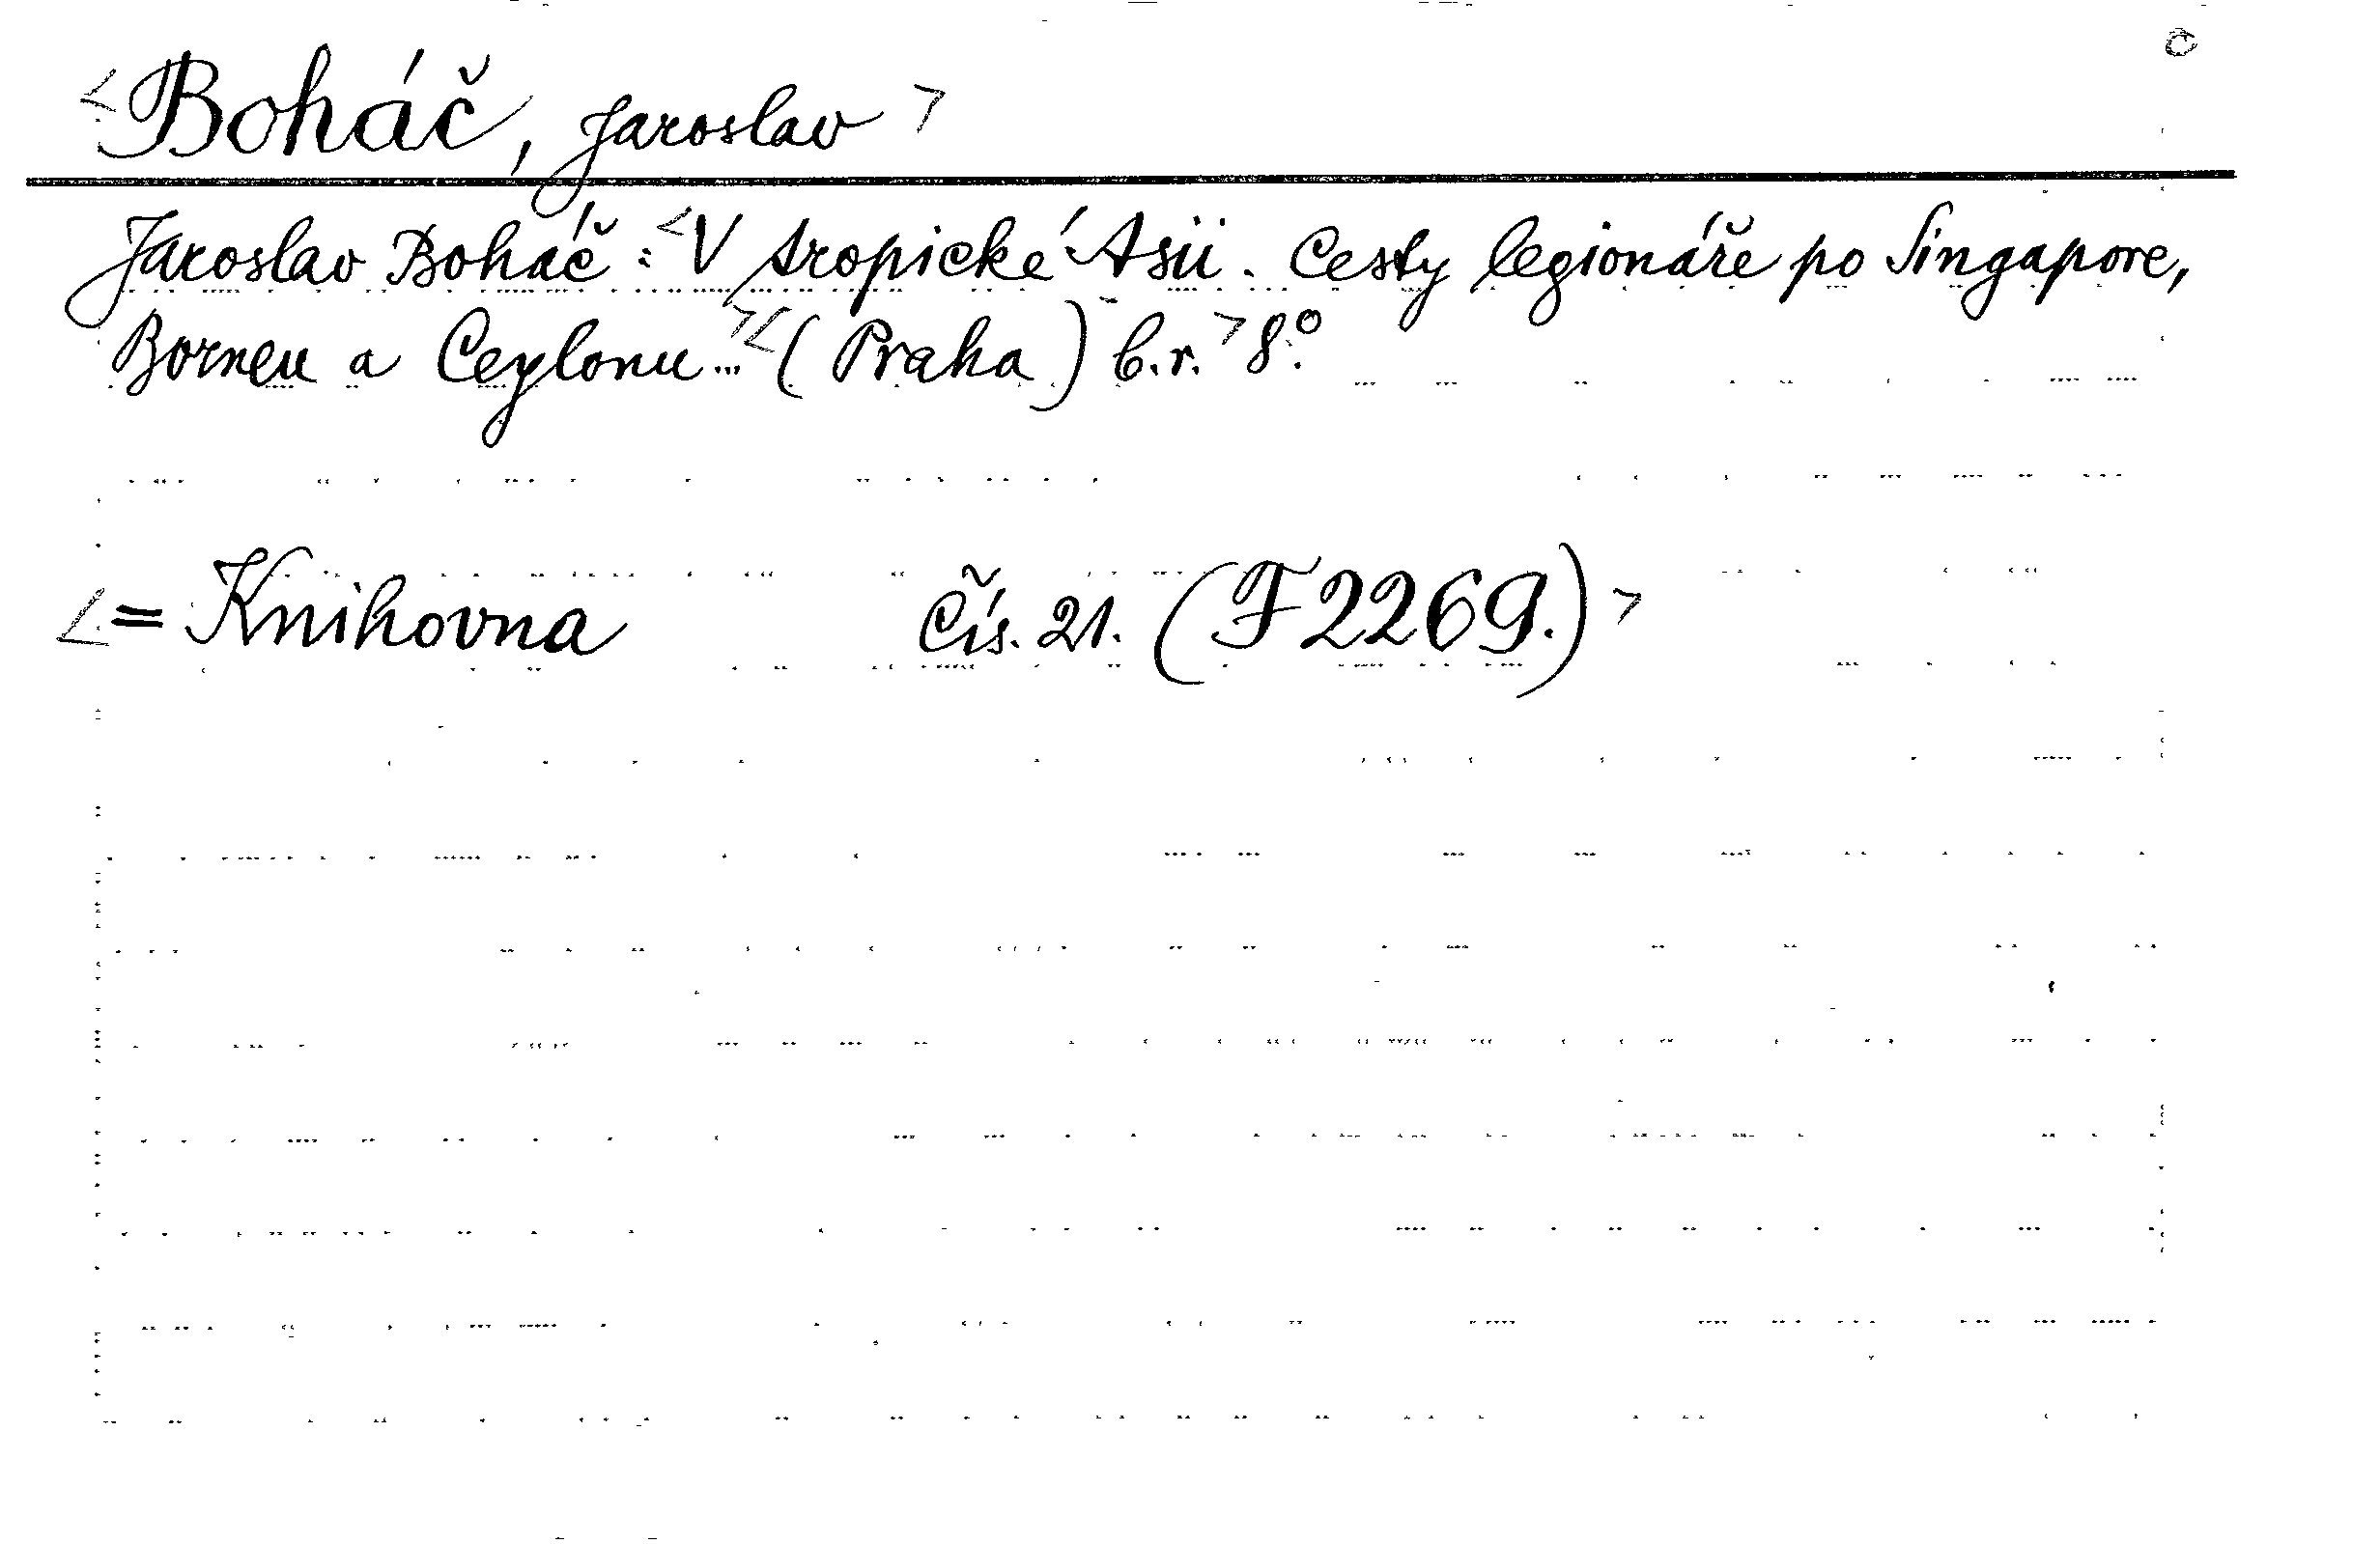 č
<Boháč, Jaroslav>
Jaroslav Boháč: <V tropické Asii. Cesty legionáře po Singapore,
Borneu a Ceylonu...><(Praha) b.r.> 8°.
<= Knihovna Čís. 21. (F 2269.)>